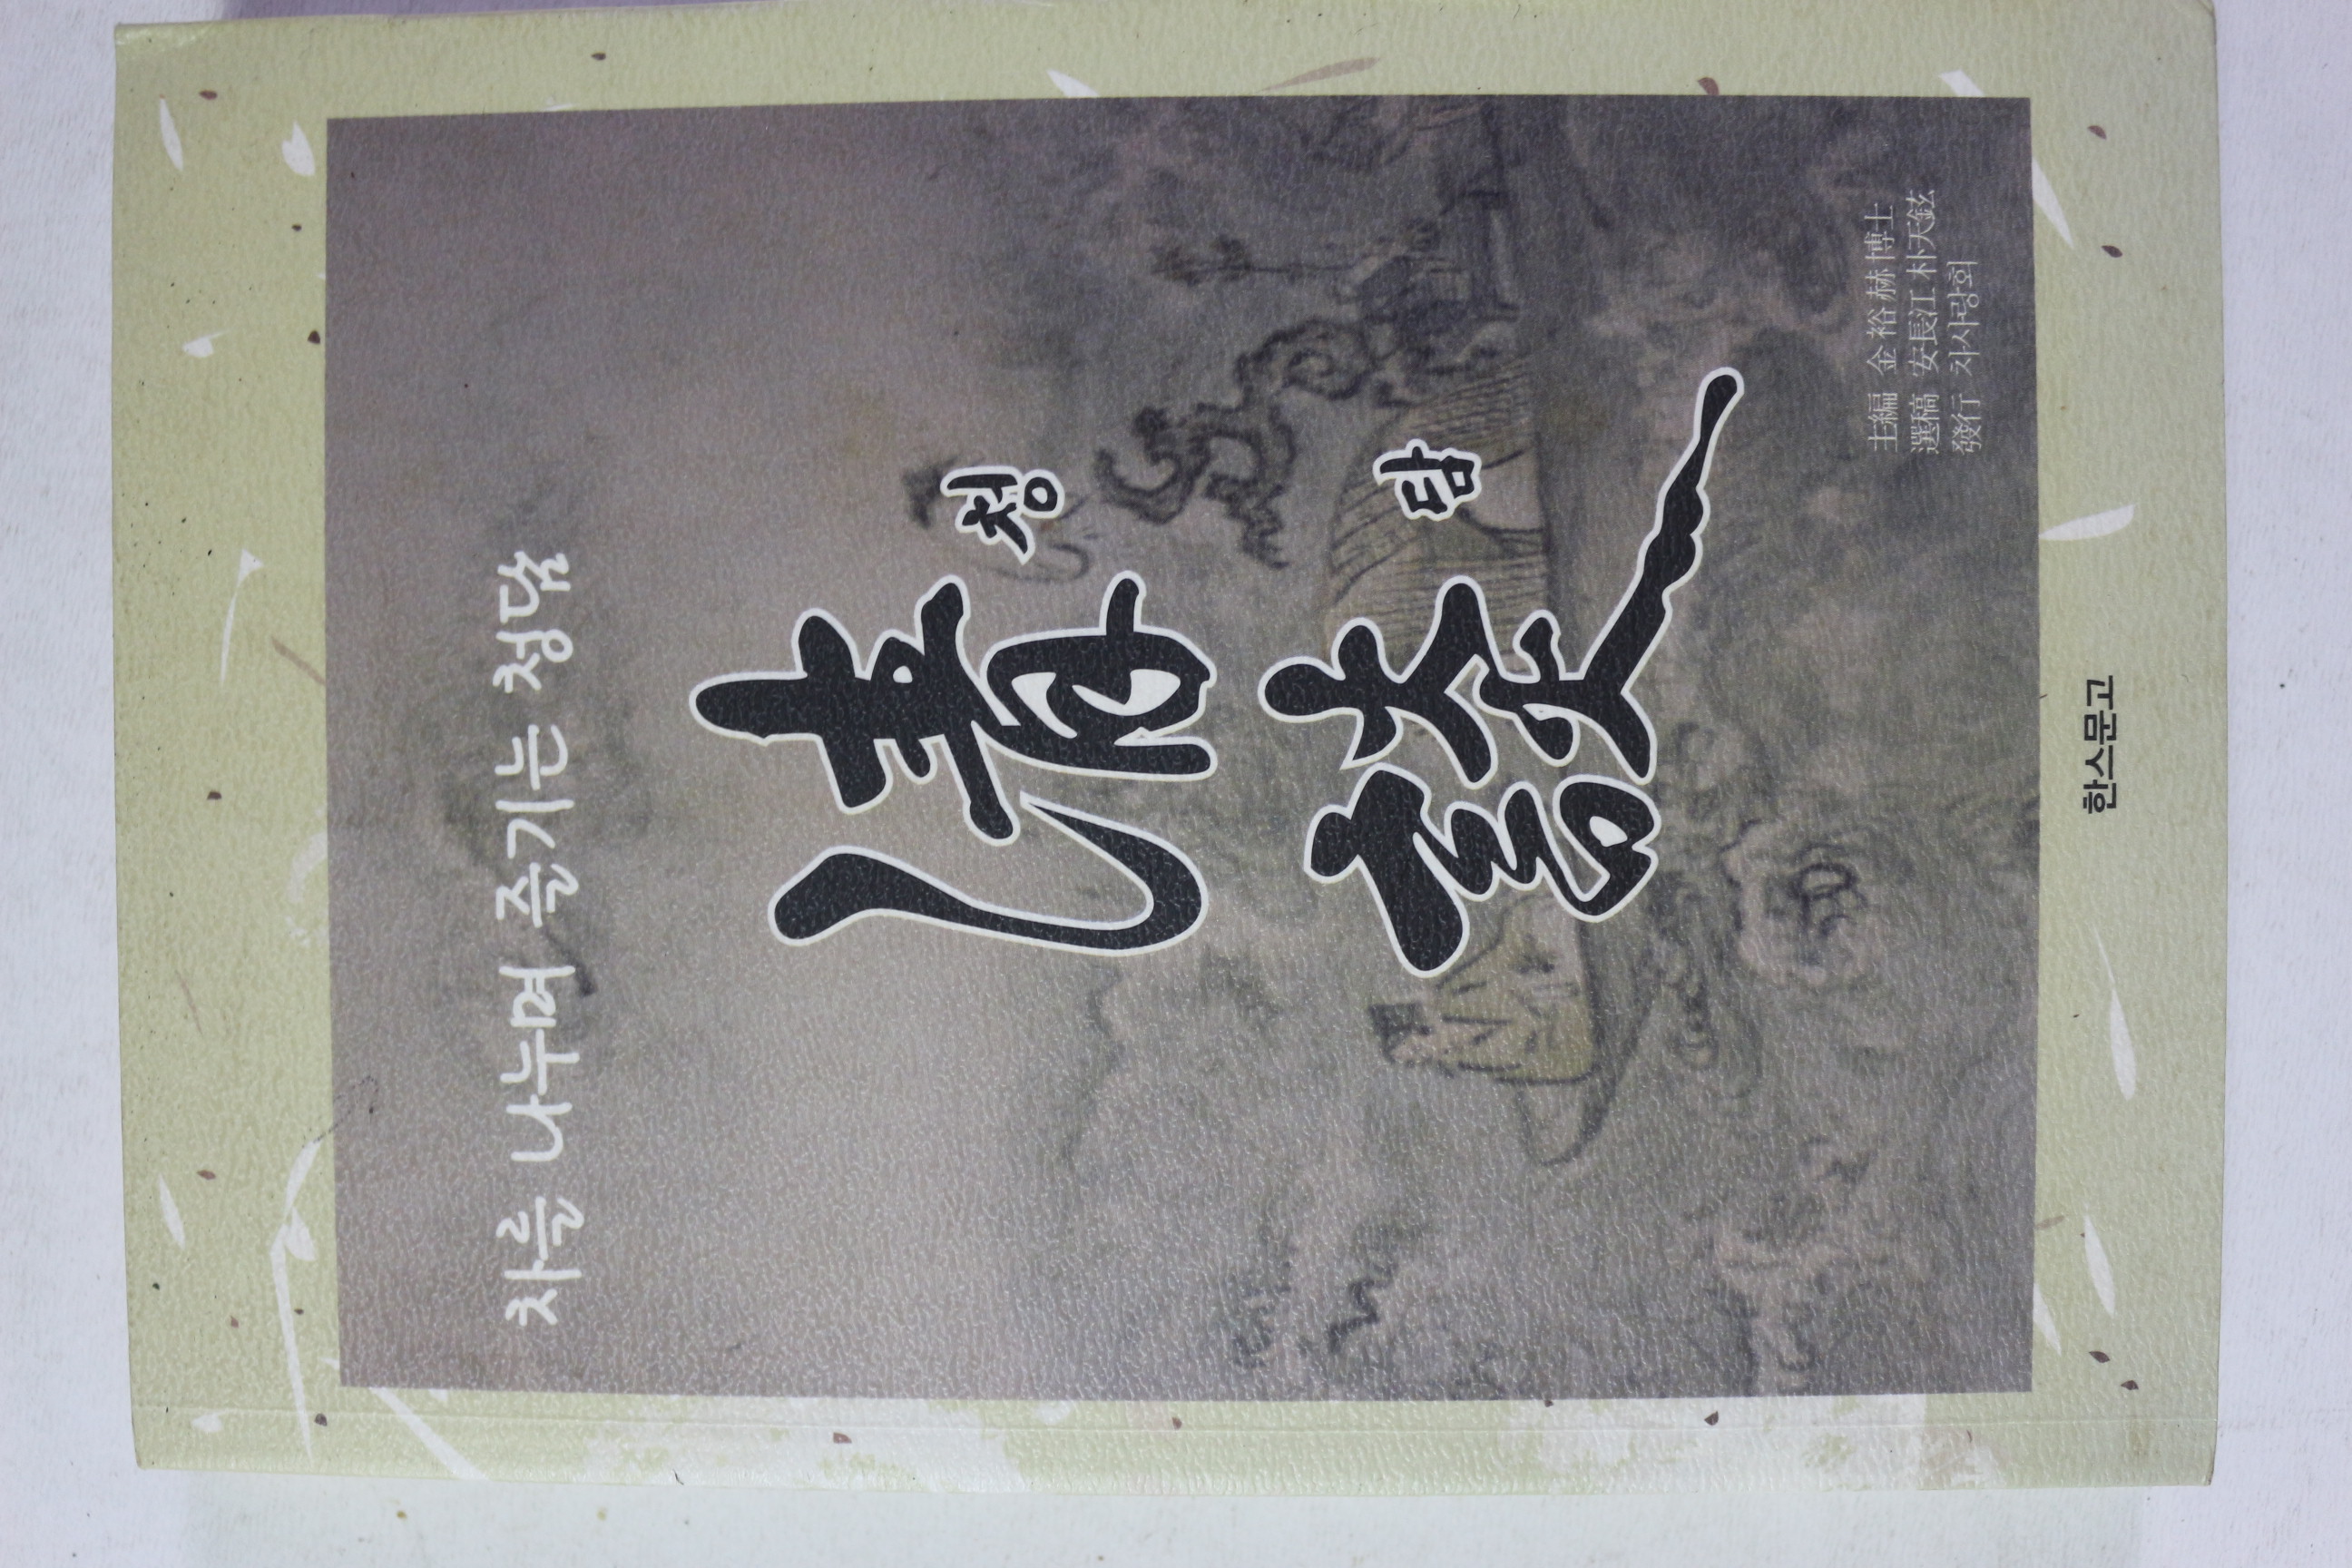 차를 나누며 즐기는 청담
清 청
談 담
主編 金裕赫 博士
選稿 安長江 朴天鉉
發行 차사랑회
한스문고